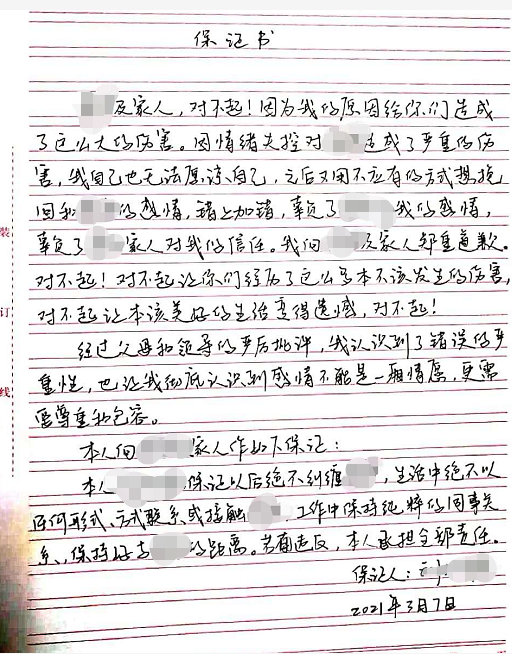 保证书
及家人，对不起！因为我的原因给你们造成
了这么大的伤害。因情绪失控对 造成了严重的伤
害，我自己也无法原谅自己，之后又用不应有的方式想挽
回和 的感情，错上加错，辜负了 我的感情，
辜负了 家人对我的信任。我向 及家人郑重道歉。
对不起！对不起让你们经历了这么多本不该发生的伤害，
对不起让本该美好的生活变得遗憾，对不起！
经过父母和领导的严厉批评，我认识到了错误的严
重性，也让我彻底认识到感情不能是一厢情愿，更需
要尊重和包容。
本人向 家人作如下保证：
本人 保证以后绝不纠缠 ，生活中绝不以
任何形式、方式联系或接触 ，工作中保持纯粹的同事关
系，保持好与 的距离。若有违反，本人承担全部责任。
保证人：
2021年3月7日
装
订
线